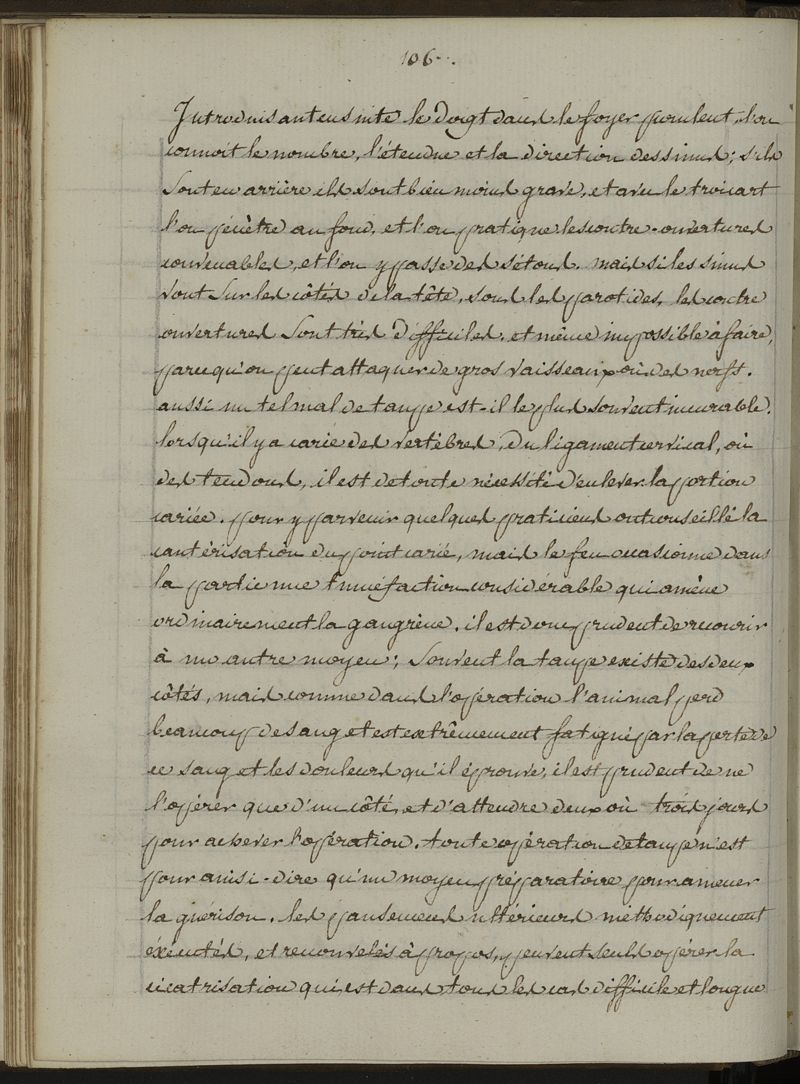 106.
Introduisant ensuite le Doigt dans le foyer purulent, l'on
connoit le nombre, l'étendue et la direction des sinus; s'ils
Sont en arrière ils sont bien moins grave, et avec le troicart
l'on pénètre au fond, et l'on pratique les contre-ouvertures
convenables, et l'on y passe des sétons. mais si les sinus
Sont Sur les côtés de la tête, sous les parotides, les contre
ouvertures Sont très Difficiles, et même impossible à faire,
parce qu'on peut attaquer de gros Vaisseaux où des nerfs.
aussi un tel mal de taupe est-il le plus Souvent incurable.
lorsqu'il y a carie des vertèbres, Du ligament cervical, où
des tendons, il est de toute nécessité d'enlever la portion
cariée. pour y parvenir quelques praticiens ont conseillé la
cautérisation Du point carié, mais le feu occasionne dans
la partie une tuméfaction considérable qui amène
ordinairement la gangrène. il est donc prudent de recourir
à un autre moyen; Souvent la taupe existe des deux
côtés, mais comme dans l'opération l'animal perd
beaucoup de sang et est extrêmement fatigué par la perte de
ce sang et les douleurs qu'il éprouve, il est prudent de ne
l'opérer que d'un côté, et d'attendre deux où trois jours
pour achever l'opération. toute opération de taupe n'est
pour ainsi-dire qu'un moyen préparatoire pour amener
la guérison. les pansemens ultérieurs méthodiquement
éxécutés, et renouvelés à propos, peuvent seuls opérer la
cicatrisation qui est dans tous les cas difficile et longue